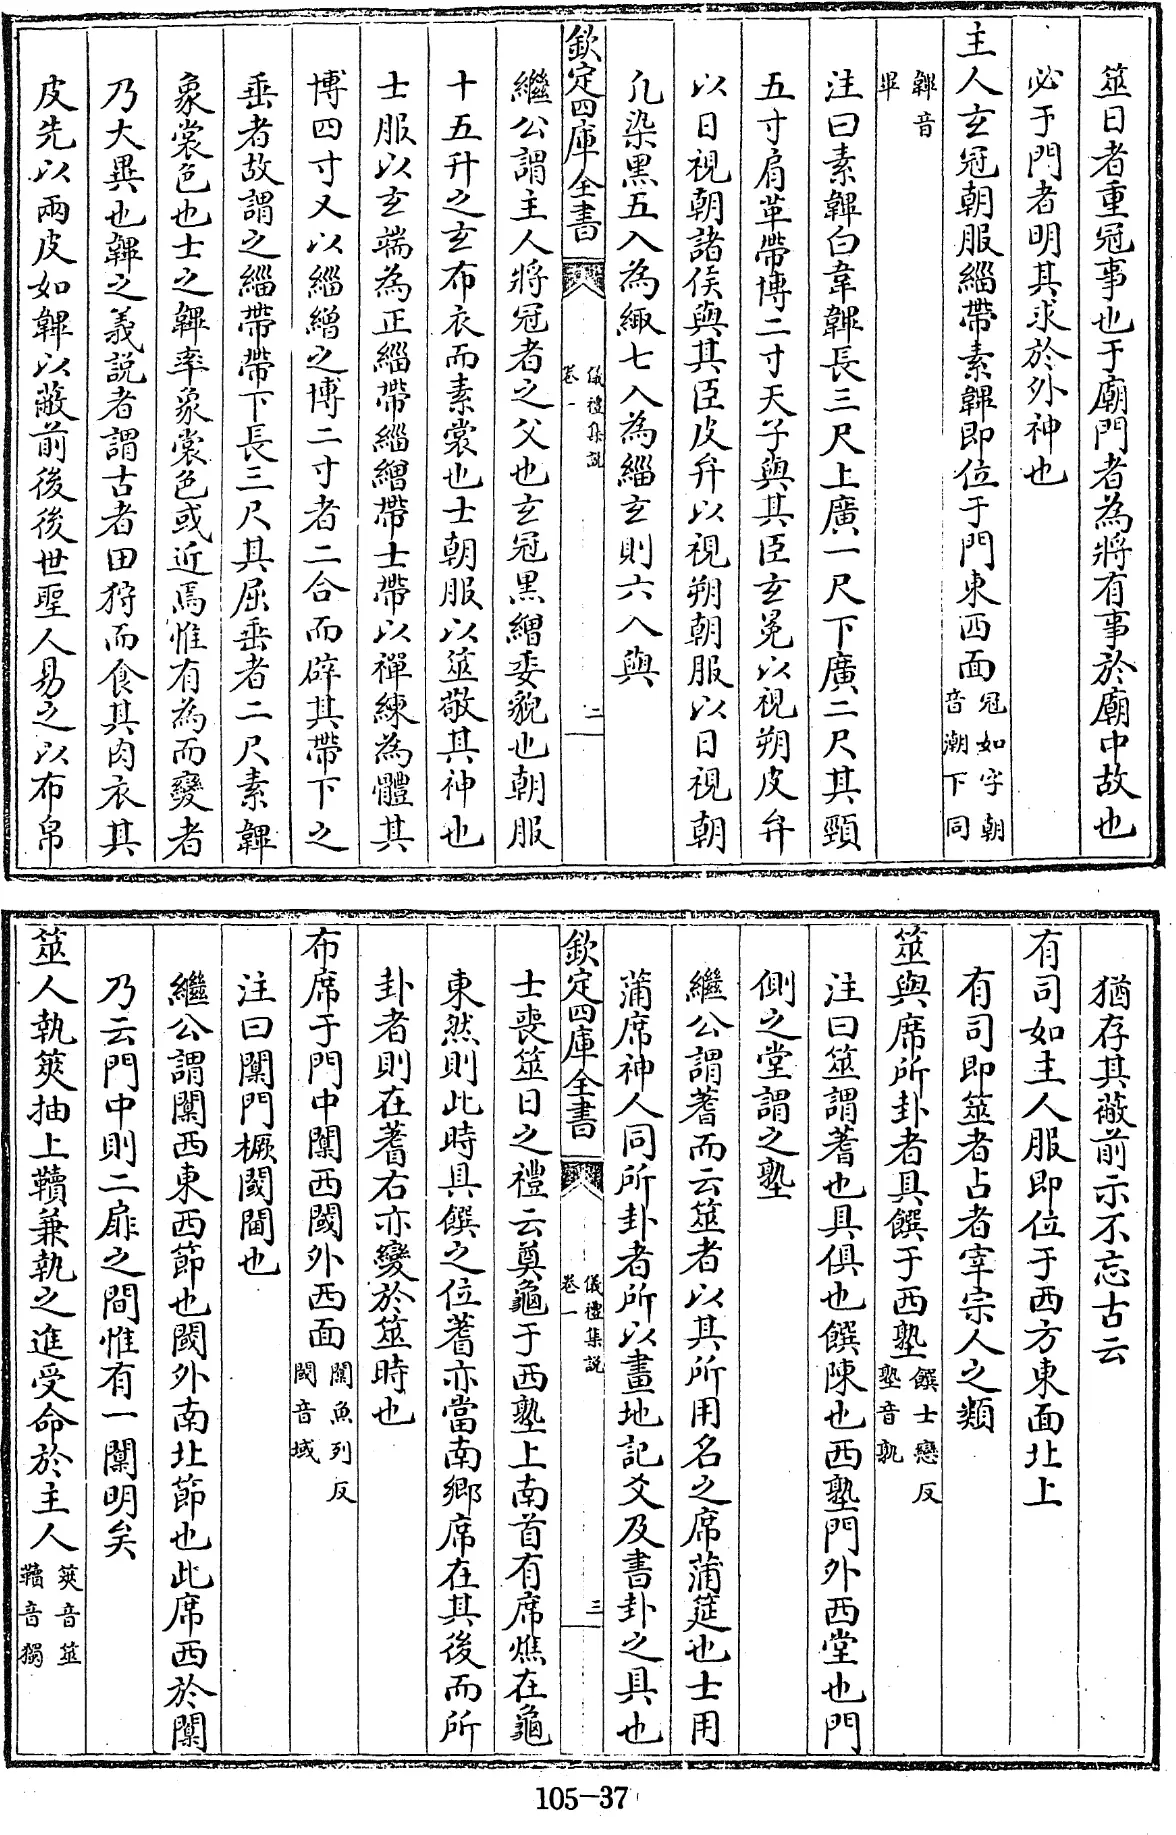 筮日者重冠事也于廟門者為將有事於廟中故也
必于門者明其求於外神也
主人玄冠朝服緇帶素韠即位于門東西面冠如字朝音潮下同
韠音畢
注曰素韠白韋韠長三尺上廣一尺下廣二尺其頸
五寸肩革帶博二寸天子與其臣玄冕以視朔皮弁
以日視朝諸侯與其臣皮弁以視朔朝服以日視朝
凡染黑五入為緅七入為緇玄則六入與
欽定四庫全書 儀禮集說卷一 二
繼公謂主人將冠者之父也玄冠黑繒委貌也朝服
十五升之玄布衣而素裳也士朝服以筮敬其神也
士服以玄端為正緇帶緇繒帶士帶以襌練為體其
博四寸又以緇繒之博二寸者二合而辟其帶下之
垂者故謂之緇帶帶下長三尺其屈垂者二尺素韠
象裳色也士之韠率象裳色或近焉惟有為而變者
乃大異也韠之義説者謂古者田狩而食其肉衣其
皮先以兩皮如韠以蔽前後後世聖人易之以布帛
猶存其蔽前示不忘古云
有司如主人服即位于西方東面北上
有司即筮者占者宰宗人之類
筮與席所卦者具饌于西塾饌士戀反塾音孰
注曰筮謂蓍也具俱也饌陳也西塾門外西堂也門
側之堂謂之塾
繼公謂蓍而云筮者以其所用名之席蒲筵也士用
蒲席神人同所卦者所以畫地記爻及書卦之具也
欽定四庫全書 儀禮集說卷一 三
士喪筮日之禮云奠龜于西塾上南首有席燋在龜
東然則此時具饌之位蓍亦當南鄉席在其後而所
卦者則在蓍右亦變於筮時也
布席于門中闑西閾外西面闑魚列反閾音域
注曰闑門橛閾閫也
繼公謂闑西東西節也閾外南北節也此席西於闑
乃云門中則二扉之間惟有一闑明矣
筮人執筴抽上韇兼執之進受命於主人筴音筮韇音獨
105-37